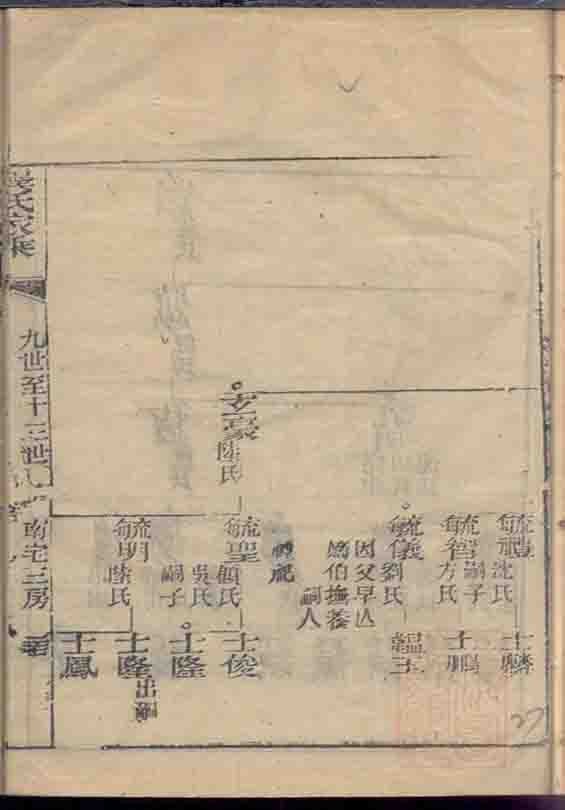 毓禮 沈氏
士麟
毓智 嗣子
方氏
士鵬
毓儀 劉氏
因父早亡
伯撫養
嗣人
韞玉
玄豪 陸氏
毓聖 顧氏
吳氏
嗣子
士俊
士隆
毓明 陸氏
士隆 出嗣
士鳳
氏家乘
九世至十三世
南宅三房
27